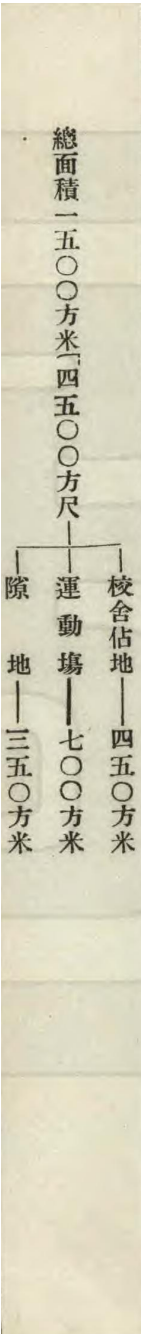 總面積一五〇〇方米「四五〇〇方尺
校舍佔地——四五〇方米
運動場——七〇〇方米
隙地——三五〇方米